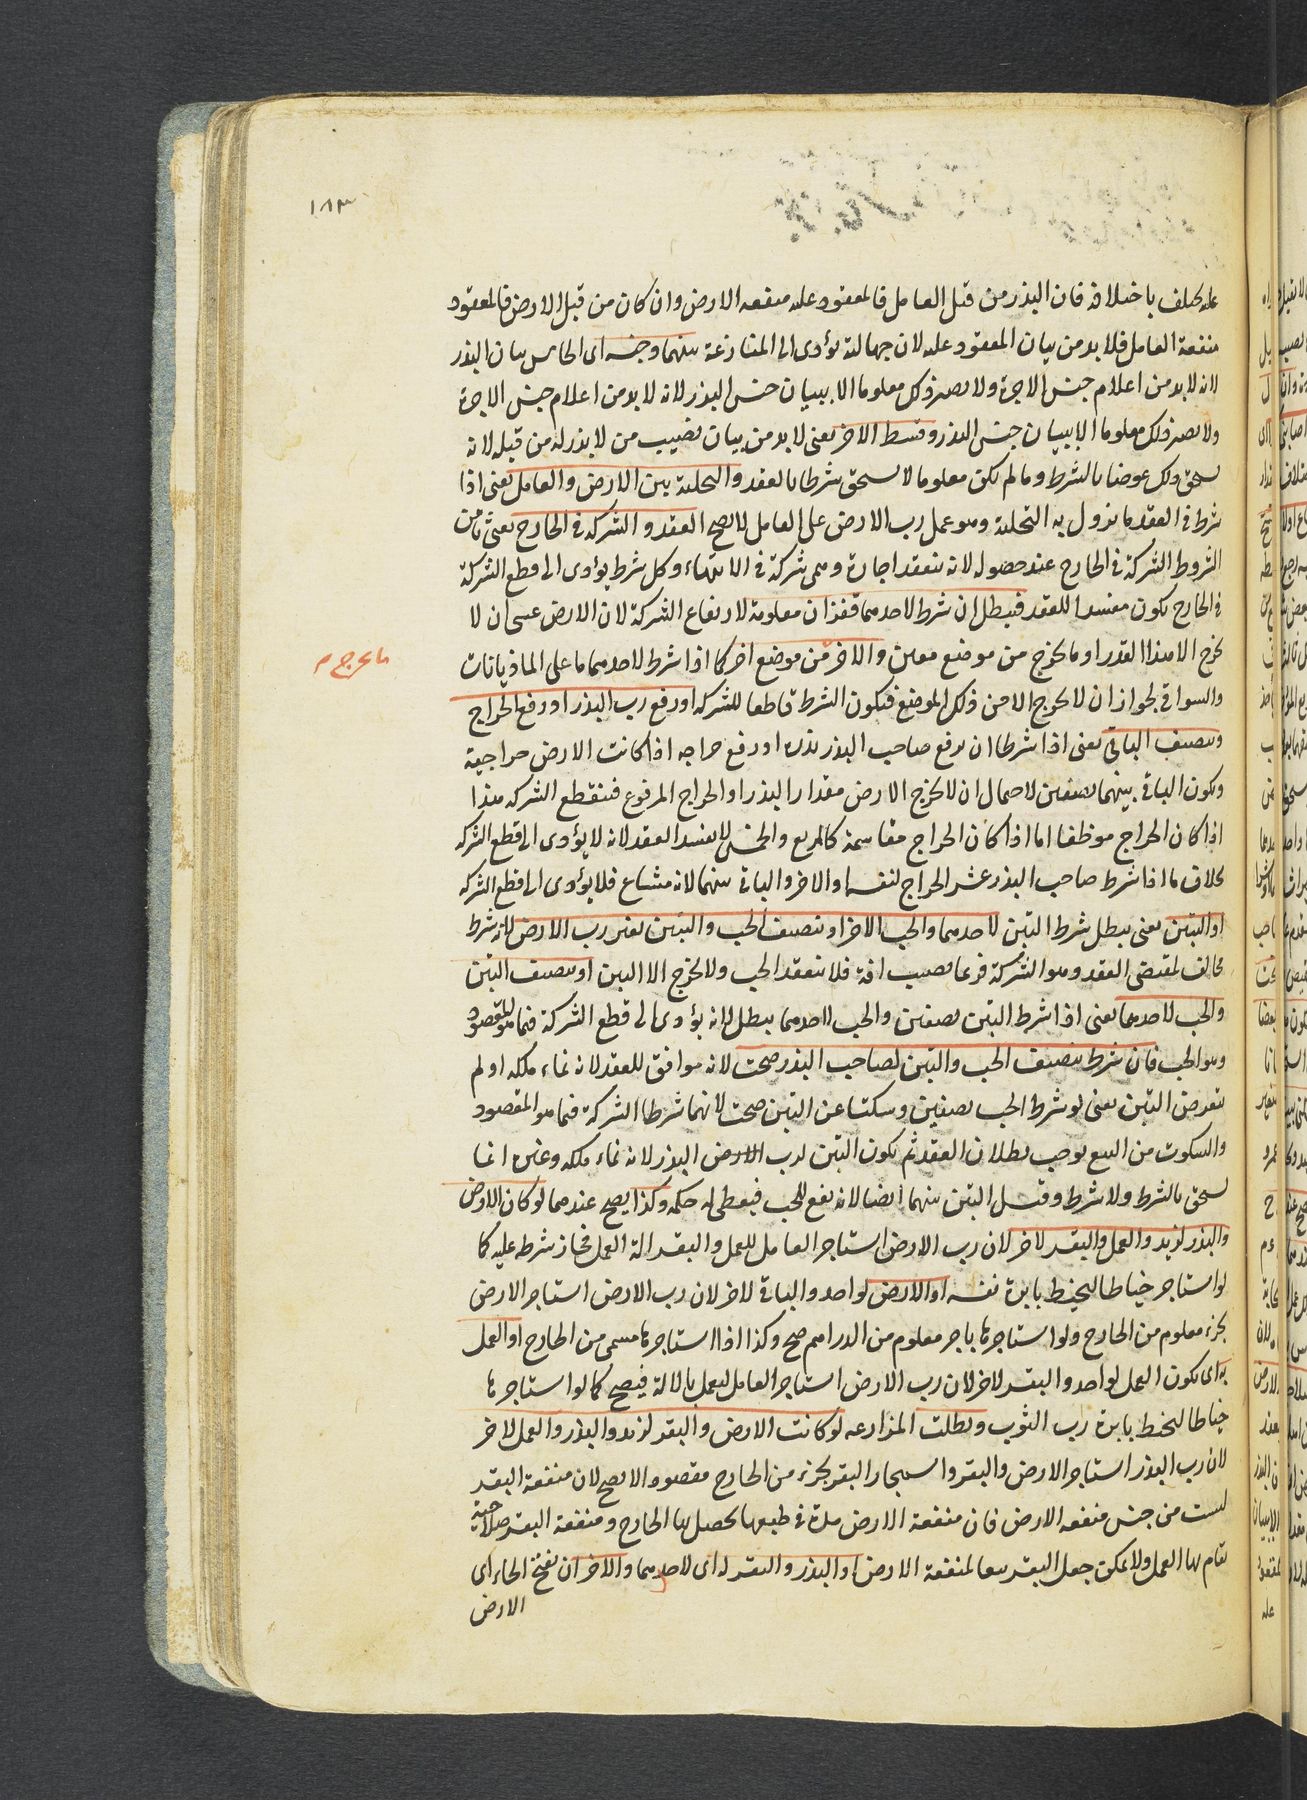 ١٨٣
عليه يختلف باختلافه فان البذر من قبل العامل فالمعقود عليه منفعة الارض وان كان من قبل الارض فالمعقود
منفعة العامل فلا بد من بيان المعقود عليه لان جهالته تؤدى الى المنازعة بينهما وجنسه اى الخامس بيان البذر
لانه لا بد من اعلام جنس الاجرة ولا يصير ذلك معلوما الا ببيان جنس البذر لانه لا بد من اعلام جنس الاجرة
ولا يصير ذلك معلوما الا ببيان جنس البذر وقسط الاخر يعنى لا بد من بيان نصيب من لا بذر له من قبله لانه
يستحق ذلك عوضا بالشرط وما لم يكن معلوما لا يستحق شرطا بالعقد والتخلية بين الارض والعامل يعنى اذا
شرط فى العقد ما يزول به التخلية وهو عمل رب الارض على العامل لا يصح العقد والشركة فى الخارج يعنى ثامن
الشروط الشركة فى الخارج عند حصوله لانه ينعقد اجارة وهى شركة فى الانتهاء وكل شرط يؤدى الى قطع الشركة
فى الخارج يكون مفسدا للعقد فيبطل ان شرط لاحدهما قفزان معلومة لارتفاع الشركة لان الارض عسى ان لا
يخرج الا هذا القدر او ما يخرج من موضع معين والاخر من موضع اخر كما اذا شرط لاحدهما ما على الماذيانات
ما يخرج م
والسواقى لجواز ان لا يخرج الا من ذلك الموضع فيكون الشرط قاطعا للشركة او رفع رب البذر او رفع الخراج
وتنصيف الباقى يعنى اذا شرطا ان يرفع صاحب البذر بذره او رفع خراجه اذا كانت الارض خراجية
ويكون الباقى بينهما نصفين لاحتمال ان لا يخرج الارض مقدار البذر او الخراج المرفوع فينقطع الشركه هذا
اذا كان الخراج موظفا اما اذا كان الخراج مقاسمة كالربع والخمس لا يفسد العقد لانه لا يؤدى الى قطع الشركة
بخلاف ما اذا شرط صاحب البذر عشر الخراج لنفسه او الاخر والباقى بينهما لانه مشاع فلا يؤدى الى قطع الشركه
او التبن يعنى يبطل شرط التبن لاحدهما والحب الاخر او تنصيف الحب والتبن لغير رب الارض لانه شرط
مخالف لمقتضى العقد وهو الشركة فربما يصيب افة فلا ينعقد الحب ولا يخرج الا التبن او تنصيف التبن
والحب لاحدهما يعنى اذا شرط التبن نصفين والحب لاحدهما يبطل لانه يؤدى الى قطع الشركة فيما هو المقصود
وهو الحب فان شرط تنصيف الحب والتبن لصاحب البذر صحت لانه موافق للعقد لانه نماء ملكه او لم
يتعرض التبن يعنى لو شرط الحب نصفين وسكتا عن التبن صحت لانهما شرطا الشركة فيما هو المقصود
والسكوت من التبع يوجب بطلان العقد ثم يكون التبن لرب الارض البذر لانه نماء ملكه وغيره انما
يستحق بالشرط ولا شرط وقيل التبن بينهما ايضا لانه يقع للحب فيعطى له حكمه وكذا يصح عندهما لو كان الارض
والبذر لزيد والعمل والبقر لاخر لان رب الارض استاجر العامل للعمل والبقر الة العمل فجاز شرطه عليه كما
لو استاجر خياطا ليخيط بابرة نفسه او الارض لواحد والباقى لاخر لان رب الارض استاجر الارض
بجزء معلوم من الخارج ولو استاجرها باجر معلوم من الدراهم صح وكذا اذا استاجرها مسمى من الخارج او العمل
له اى يكون العمل لواحد والبقر لاخر لان رب الارض استاجر العامل ليعمل بالالة فيصح كما لو استاجرها
خياطا ليخيط بابرة رب الثوب وبطلت المزارعه لو كانت الارض والبقر لزيد والبذر والعمل لاخر
لان رب البذر استاجر الارض والبقر واستيجار البقر بجزء من الخارج مقصودا لا يصح لان منفعة البقر
ليست من جنس منفعه الارض فان منفعة الارض ملدة فى طبعها يحصل بها الخارج ومنفعة البقر صلاحية
تقام بها العمل ولا يمكن جعل البقر تبعا لمنفعة الارض او البذر والبقر له اى لاحدهما والاخران بفتح الخاء اى
الارض